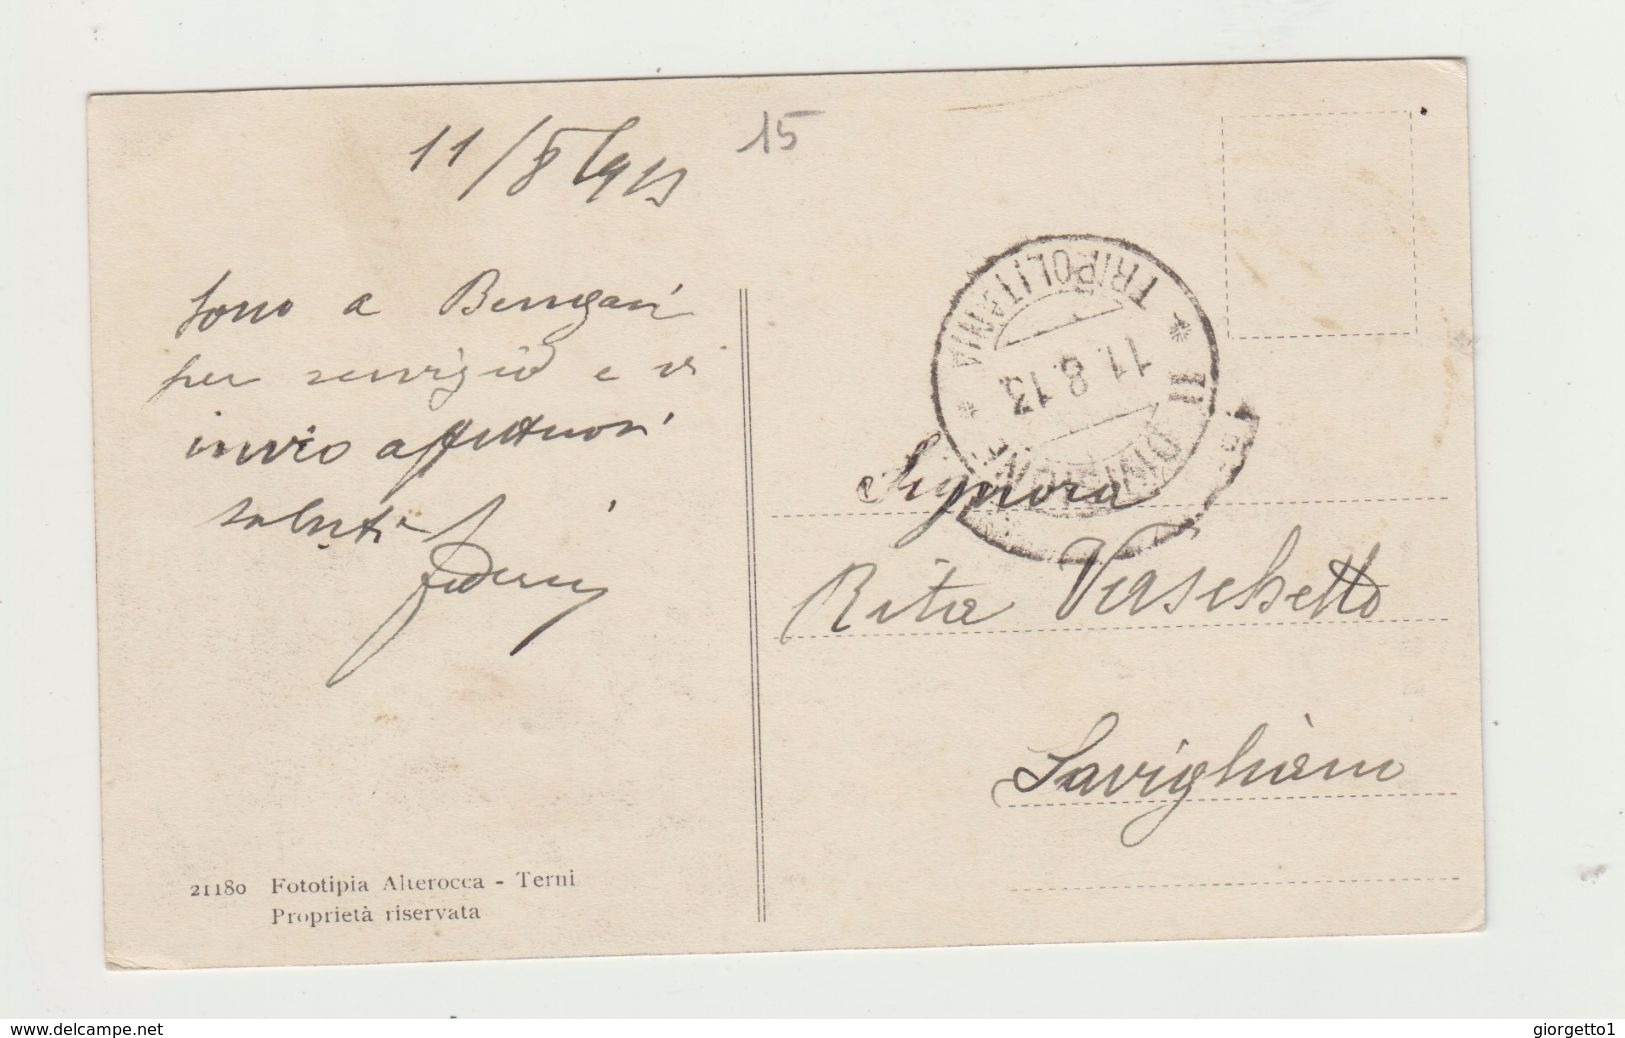 11/8/913
15
Sono a Bengasi
per servizio e vi
invio affettuosi
saluti
21180 Fototipia Alterocca - Terni
Proprietà riservata
TRIPOLITANIA
11.8.13
DIVISIONE
Signora
Rita Vaschetto
Savigliano
www.delcampe.net
giorgetto1